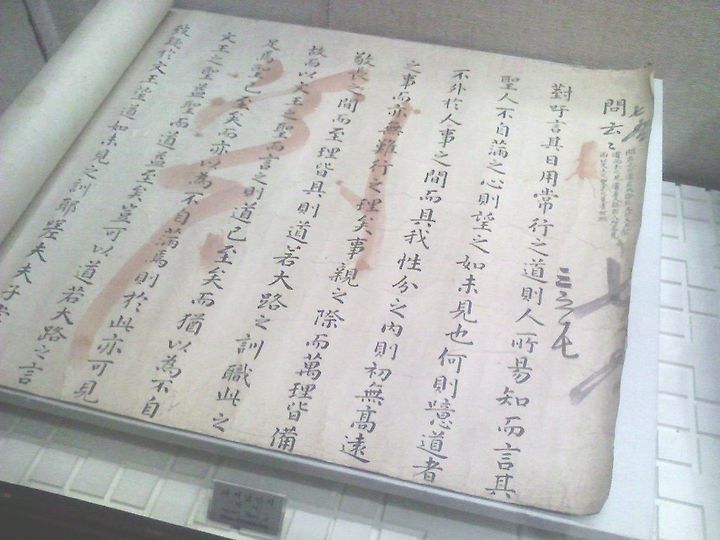 問云々
對吁言其日用常行之道則人所易知而言其
聖人不自滿之心則望之如未見也何則噫道者
不外於人事之間而具我性分之內則初無高遠
之事而亦無難行之理矣事親之際而萬理皆備
敬長之間而至理皆具則道若大路之訓職此之
故而以文王之聖而言之則道已至矣而猶以為不自
足焉聖已至矣而亦以為不自滿焉則於此亦可見
文王之聖益聖而道益至矣豈可以道若大路之言
致疑於文王望道如未見之訓耶嗟夫夫子